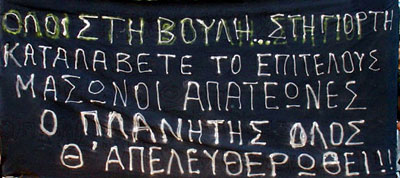 ΟΛΟΙ ΣΤΗ ΒΟΥΛΗ... ΣΤΗ ΓΙΟΡΤΗ
ΚΑΤΑΛΑΒΕΤΕ ΤΟ ΕΠΙΤΕΛΟΥΣ
ΜΑΣΩΝΟΙ ΑΠΑΤΕΩΝΕΣ
Ο ΠΛΑΝΗΤΗΣ ΟΛΟΣ
Θ' ΑΠΕΛΕΥΘΕΡΩΘΕΙ!!!